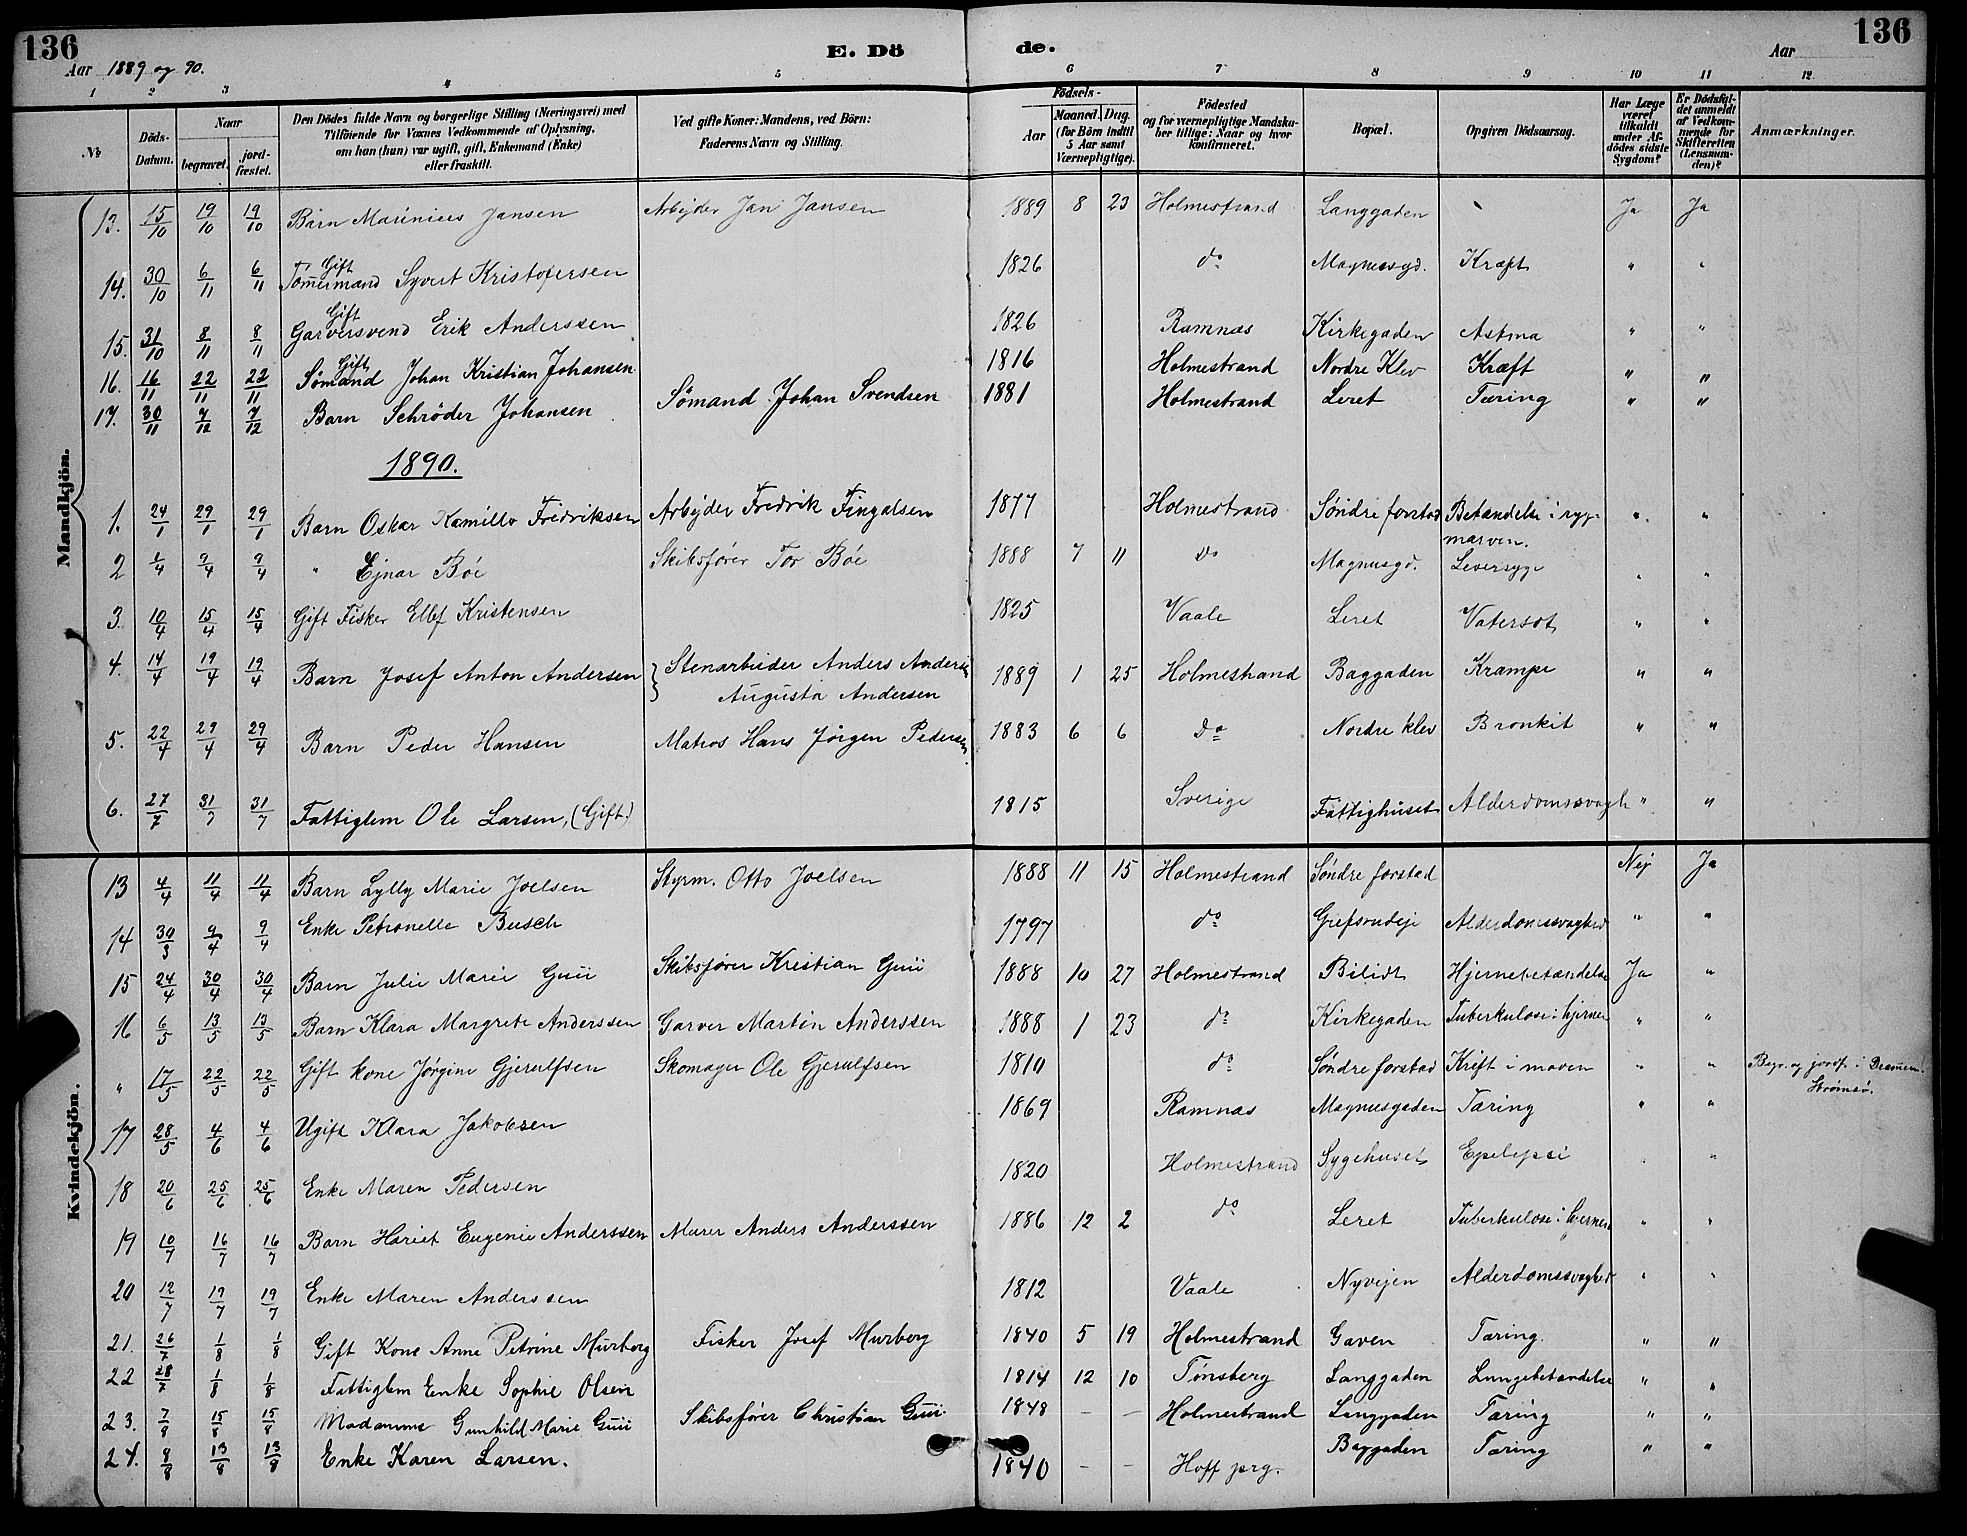 136 E. Dö de. 136
Aar 1889 og 90. Aar
1 2 3 4 5 6 7 8 9 10 11 12
№ Döds-Datum. Naar begravet. jord-fæstet. Den Dödes fulde Navn og borgerlige Stilling (Næringsvei) med Tilföiende for Voxnes Vedkommende af Oplysning, om han (hun) var ugift, gift, Enkemand (Enke) eller fraskilt. Ved gifte Koner: Mandens, ved Börn: Faderens Navn og Stilling. Födsels- Aar Maaned. Dag. (for Börn indtil 5 Aar samt Værnepligtige). Födested og for værnepligtige Mandskaber tillige: Naar og hvor konfirmeret. Bopæl. Opgiven Dödsaarsag. Har Læge været tilkaldt under Afdödes sidste Sygdom? Er Dödsfaldet anmeldt af Vedkommende for Skifteretten (Lensmanden)? Anmærkninger.
Mandkjön.
13. 15/10 19/10 19/10 Barn Marinius Jansen Arbejder Jan Jansen 1889 8 23 Holmestrand Langgaden Ja Ja
14. 30/10 6/11 6/11 Gift Tømmermand Syvert Kristofersen 1826 do Magnusgd. Kræft " "
15. 31/10 8/11 8/11 Gift Garversvend Erik Anderssen 1826 Ramnæs Kirkegaden Astma " "
16. 16/11 22/11 22/11 Gift Sømand Johan Kristian Johansen 1816 Holmestrand Nordre Klev Kræft " "
17. 30/11 7/12 7/12 Barn Schrøder Johansen Sømand Johan Svendsen 1881 Holmestrand Leret Tæring " "
1890.
1. 24/1 29/1 29/1 Barn Oskar Kamillo Fredriksen Arbejder Fredrik Fingalsen 1877 Holmestrand Søndre forstad Betændelse i rygmarven. " "
2 1/4 9/4 9/4 " Ejnar Böe Skibsfører Tor Böe 1888 7 11 do Magnusgd. Leversyge " "
3. 10/4 15/4 15/4 Gift Fisker Ellef Kristensen 1825 Vaale Leret Vatersot " "
4. 14/4 19/4 19/4 Barn Josef Anton Andersen } Stenarbeider Anders Andersen
Augusta Andersen 1889 1 25 Holmestrand Baggaden Krampe " "
5. 22/4 29/4 29/4 Barn Peder Hansen Matros Hans Jørgen Pedersen 1883 6 6 do Nordre klev Bronkit " "
6. 27/7 31/7 31/7 Fattiglem Ole Larsen, (Gift.) 1815 Sverige Fattighuset Alderdomssvagh " "
Kvindekjön.
13 4/4 11/4 11/4 Barn Lylly Marie Joelsen Styrm. Otto Joelsen 1888 11 15 Holmestrand Søndre forstad Nej Ja
14 30/3 9/4 9/4 Enke Petronelle Busch 1797 do Grefsrudeje Alderdomssvaghed " "
15 24/4 30/4 30/4 Barn Julie Marie Guii Skibsfører Kristian Guii 1888 10 27 Holmestrand Bilidt Hjernebetændelse Ja "
16 6/5 13/5 13/5 Barn Klara Margrete Anderssen Garver Martin Anderssen 1888 1 23 do Kirkegaden Tuberkulose i hjernen " "
" 17/5 22/5 22/5 Gift kone Jørgine Gjerulfsen Skomager Ole Gjerulfsen 1810 do Søndre forstad Kræft i maven " " Begr. og jordf. i Drammen. Strømsø.
17 28/5 4/6 4/6 Ugift Klara Jakobsen 1869 Ramnæs Magnusgaden Tæring " "
18 20/6 25/6 25/6 Enke Maren Pedersen 1820 Holmestrand Sygehuset Epelepsi " "
19 10/7 16/7 16/7 Barn Hariet Eugenie Anderssen Murer Anders Anderssen 1886 12 2 do Leret Tuberkulose i hjernen " "
20 12/7 19/7 19/7 Enke Maren Anderssen 1812 Vaale Nyvejen Alderdomssvaghed " "
21. 26/7 1/8 1/8 Gift Kone Anne Petrine Murberg Fisker Josef Murberg 1840 5 19 Holmestrand Gaven Tæring. " "
22 28/7 1/8 1/8 Fattiglem Enke Sophie Olsen 1814 12 10 Tønsberg Langgaden Lungebetændelse " "
23. 7/8 15/8 15/8 Madamme Gunhild Marie Guii Skibsfører Christian Guii. 1848 — — Holmestrand Langgaden Tæring " "
24. 9/8 13/8 13/8 Enke Karen Larsen. 1840 — — Hoff prg. Baggaden Tæring " "